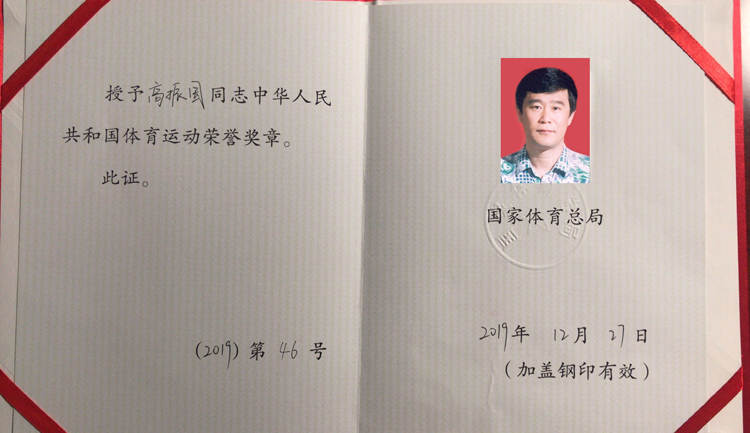 授予高振国同志中华人民
共和国体育运动荣誉奖章。
此证。
(2019)第 46 号
国家体育总局
2019年 12月 27日
(加盖钢印有效)